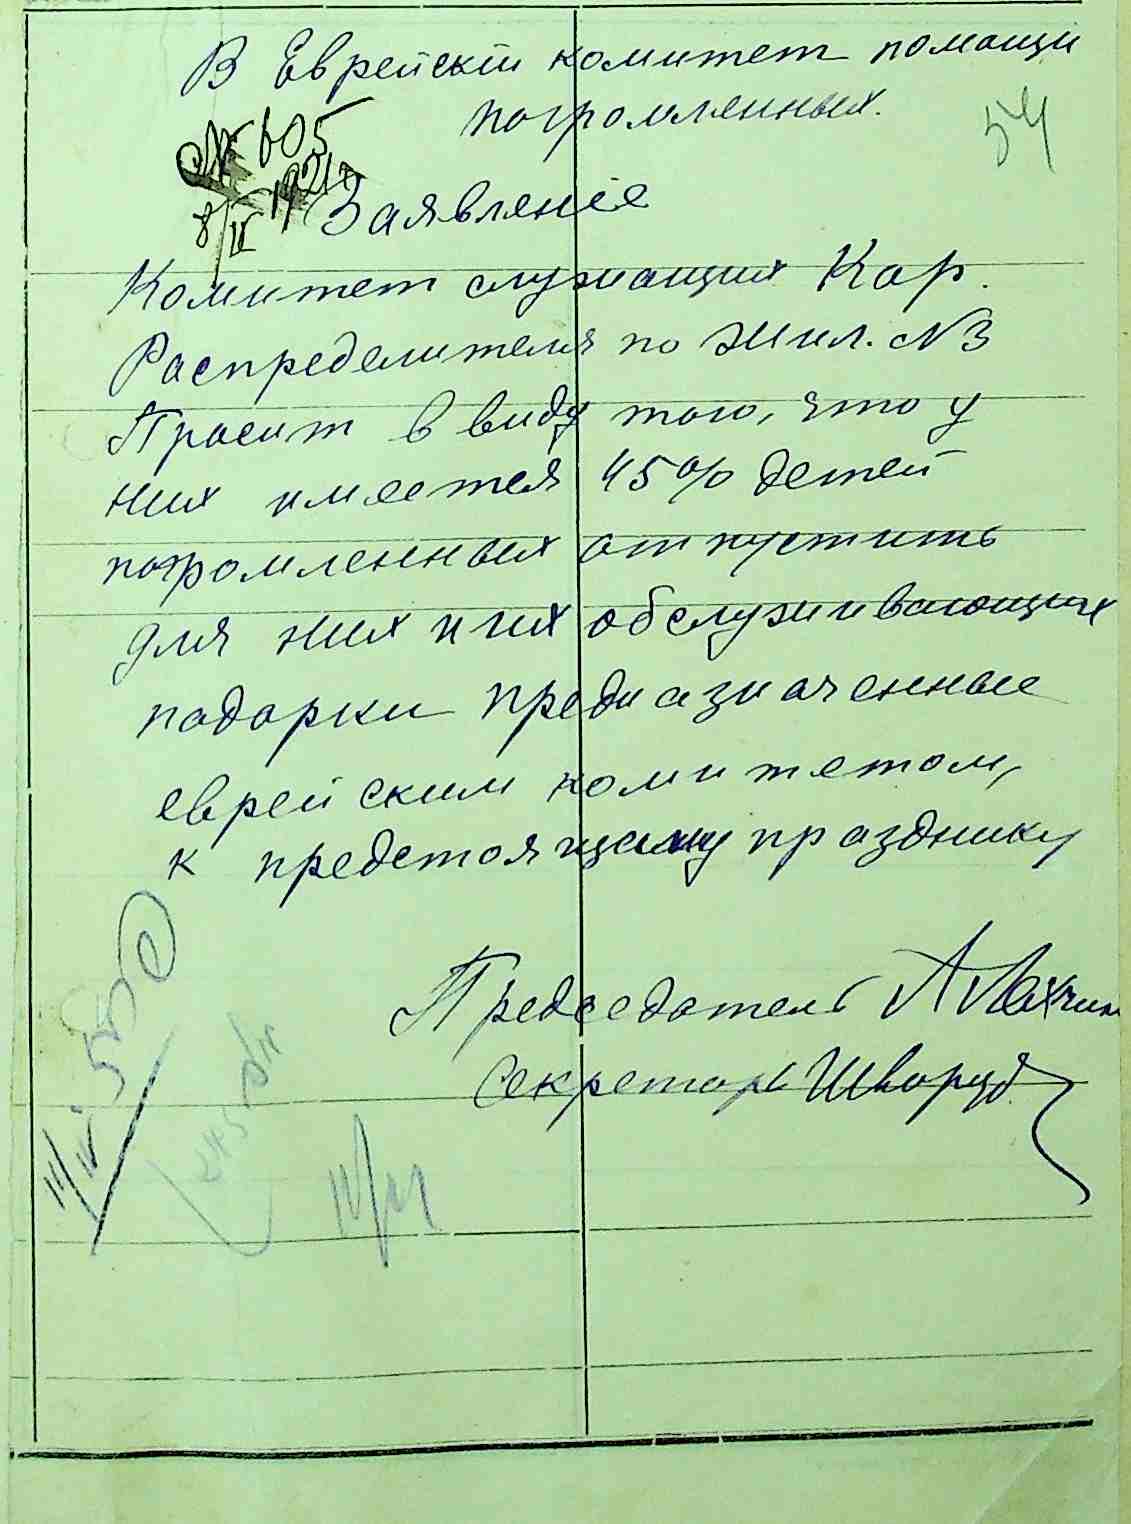 В Еврейскій комитет помощи
погромленных.
54
№ 605
8/IV 1921 г
Заявленіе
Комитет служащих Кар.
Распределителя по Жил. №3
Просит в виду того, что у
них имеется 45% детей
погромленных отпустить
для них и их обслуживающих
подарки предназначенные
еврейским комитетом,
к предстоящему празднику
Председатель А
Секретарь
11/IV